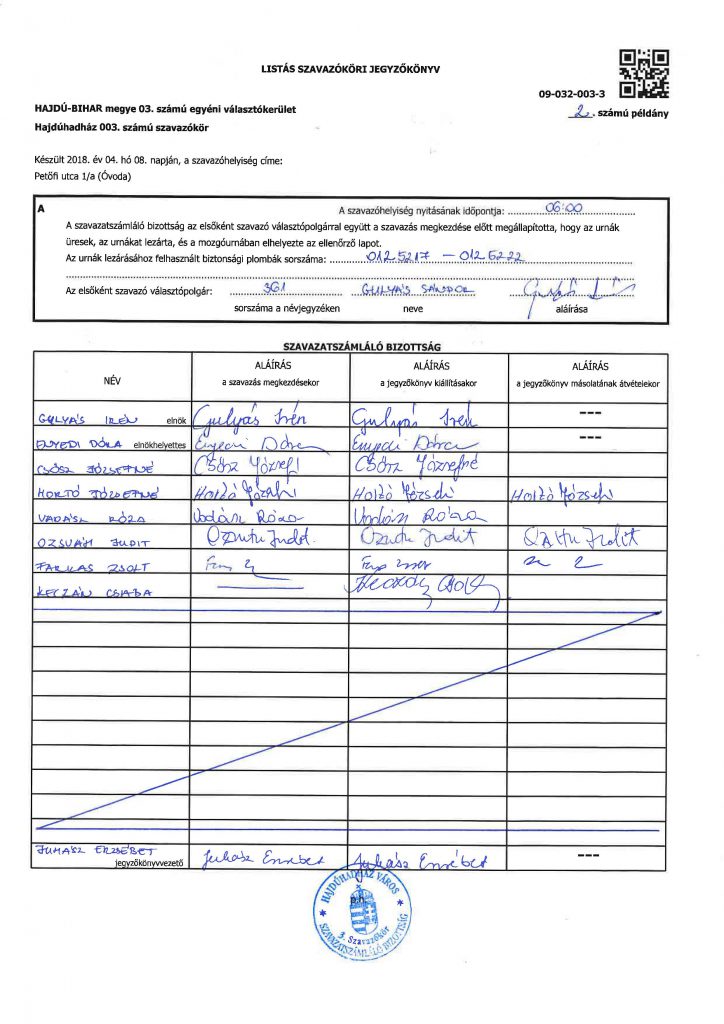 LISTÁS SZAVAZÓKÖRI JEGYZŐKÖNYV
09-032-003-3
HAJDÚ-BIHAR megye 03. számú egyéni választókerület
2. számú példány
Hajdúhadház 003. számú szavazókör
Készült 2018. év 04. hó 08. napján, a szavazóhelyiség címe:
Petőfi utca 1/a (Óvoda)
A
A szavazóhelyiség nyitásának időpontja: 06:00
A szavazatszámláló bizottság az elsőként szavazó választópolgárral együtt a szavazás megkezdése előtt megállapította, hogy az urnák
üresek, az urnákat lezárta, és a mozgóurnában elhelyezte az ellenőrző lapot.
Az urnák lezárásához felhasznált biztonsági plombák sorszáma: 0125217 – 0125222
Az elsőként szavazó választópolgár: 361 GULYÁS SÁNDOR
sorszáma a névjegyzéken neve aláírása
SZAVAZATSZÁMLÁLÓ BIZOTTSÁG
NÉV
ALÁÍRÁS
a szavazás megkezdésekor
ALÁÍRÁS
a jegyzőkönyv kiállításakor
ALÁÍRÁS
a jegyzőkönyv másolatának átvételekor
GULYÁS IRÉN elnök Gulyás Irén Gulyás Irén ---
ENYEDI DÓRA elnökhelyettes Enyedi Dóra Enyedi Dóra ---
CSŐSZ JÓZSEFNÉ Csősz Józsefné
VADÁSZ RÓZA Vadász Róza Vadász Róza
OZSVÁTH JUDIT
FARKAS ZSOLT
KECZÁN CSABA
JUHÁSZ ERZSÉBET
jegyzőkönyvvezető Juhász Erzsébet Juhász Erzsébet ---
p.h.
HAJDÚHADHÁZ VÁROS
3. Szavazókör
SZAVAZATSZÁMLÁLÓ BIZOTTSÁG